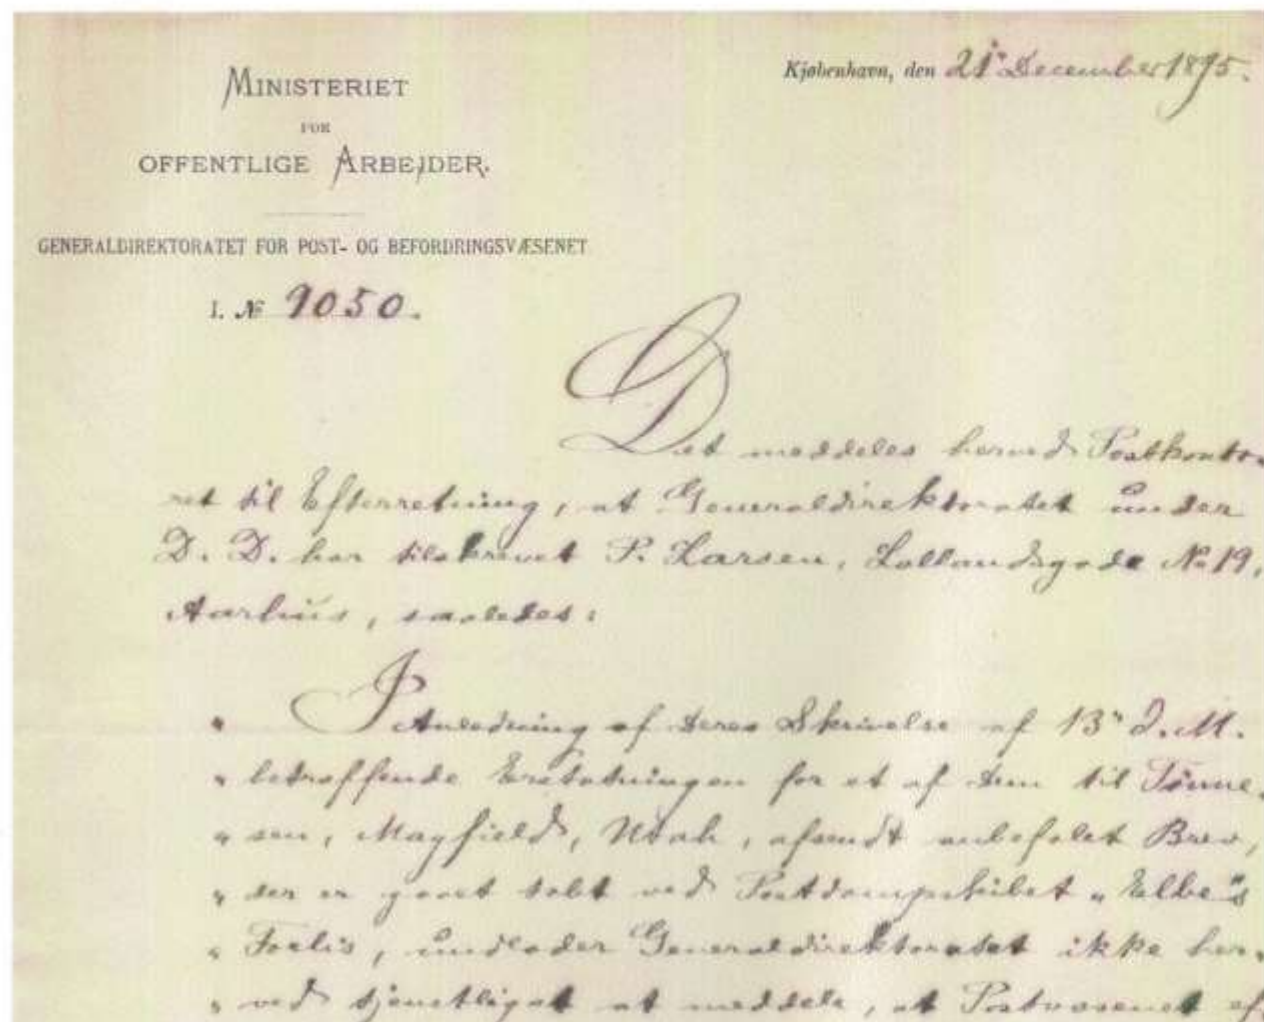 MINISTERIET
FOR
OFFENTLIGE ARBEJDER.
GENERALDIREKTORATET FOR POST- OG BEFORDRINGSVÆSENET
I. № 9050.
Kjøbenhavn, den 21' December 1895.
Det meddeles herved Postkonto-
ret til Efterretning, at Generaldirektoratet under
D. D. har tilskrevet P. Larsen, Lollandsgade No 19,
Aarhus, saaledes:
" I Anledning af Deres Skrivelse af 13" d. M.
" betræffende Erstatningen for et af Dem til Tönne-
" sen, Mayfield, Utah, afsendt anbefalet Brev,
" der er gaaet tabt ved Postdampskibet "Elbe"s
" Forlis, undlader Generaldirektoratet ikke her-
" ved tjenstligst at meddele, at Postvæsenet ef-